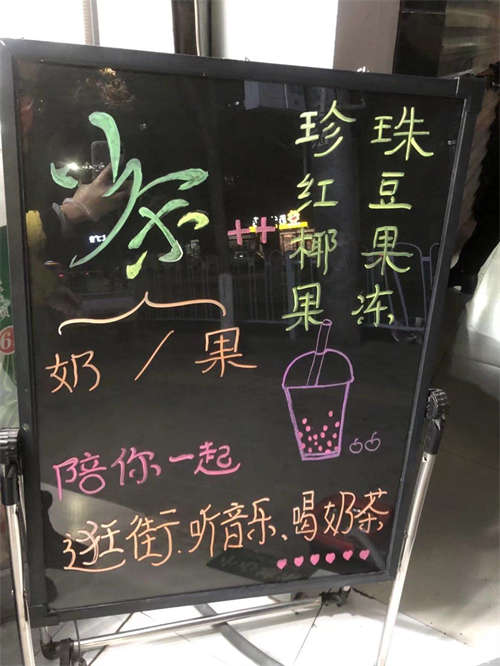 茶 ++
珍珠
红豆
椰果
果冻
奶 / 果
陪你一起
逛街、听音乐、喝奶茶